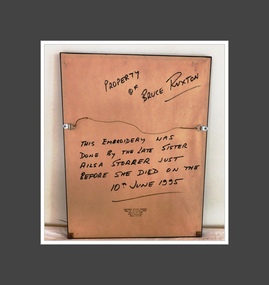 PROPERTY
OF
BRUCE RUXTON
THIS EMBROIDERY WAS
DONE BY THE LATE SISTER
AILSA STORRER JUST
BEFORE SHE DIED ON THE
10TH JUNE 1995